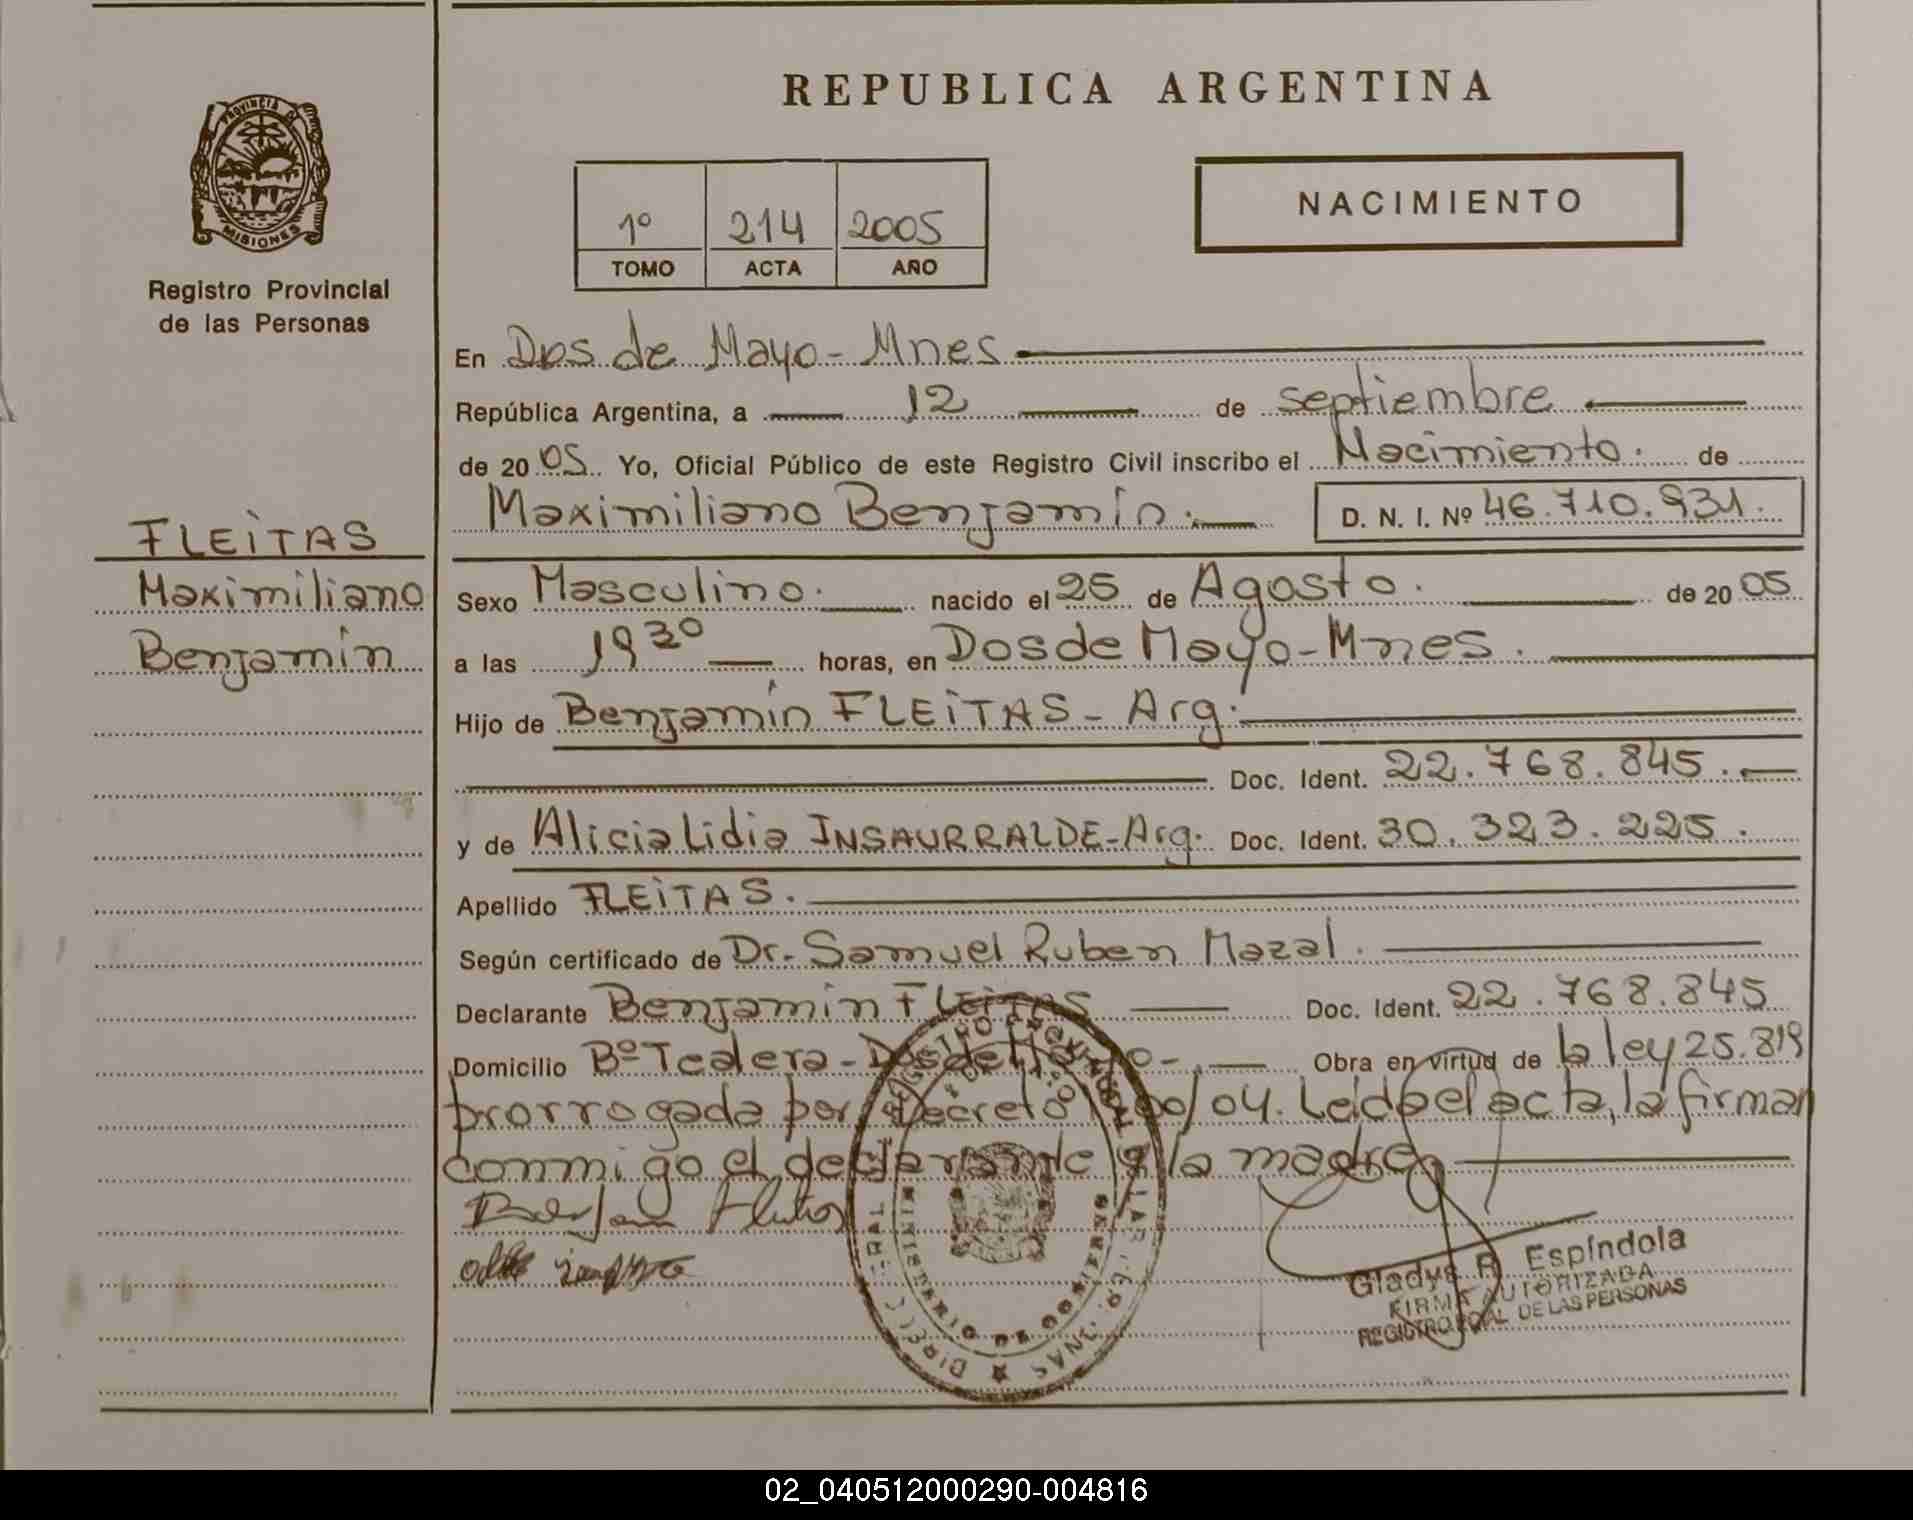 REPUBLICA ARGENTINA
PROVINCIA DE MISIONES
Registro Provincial
de las Personas
1º 214 2005
TOMO ACTA AÑO
NACIMIENTO
En Dos de Mayo - Mnes
República Argentina, a 12 de septiembre
de 2005 Yo, Oficial Público de este Registro Civil inscribo el Nacimiento. de
Maximiliano Benjamín. D. N. I. Nº 46.710.931.
FLEiTAS
Maximiliano
Benjamín
Sexo Masculino. nacido el 25 de Agosto. de 2005
a las 19 30 horas, en Dos de Mayo - Mnes.
Hijo de Benjamín FLEiTAS - Arg.
Doc. Ident. 22.768.845.
y de Alicia Lidia INSAURRALDE - Arg. Doc. Ident. 30.323.225.
Apellido FLEiTAS.
Según certificado de Dr. Samuel Ruben Mazal.
Declarante Benjamin FLEiTAS Doc. Ident. 22.768.845
Domicilio Bº Tealera - Dos de Mayo -. Obra en virtud de la ley 25.819
prorrogada por Decreto /04. Leida el acta, la firman
conmigo el declarante y la madre
Gladys R. Espíndola
FIRMA AUTORIZADA
REGISTRO PCIAL DE LAS PERSONAS
02_040512000290-004816